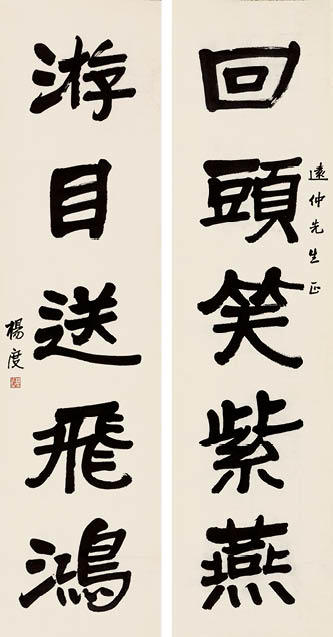 遠仲先生正
回頭笑紫燕
游目送飛鴻
楊度